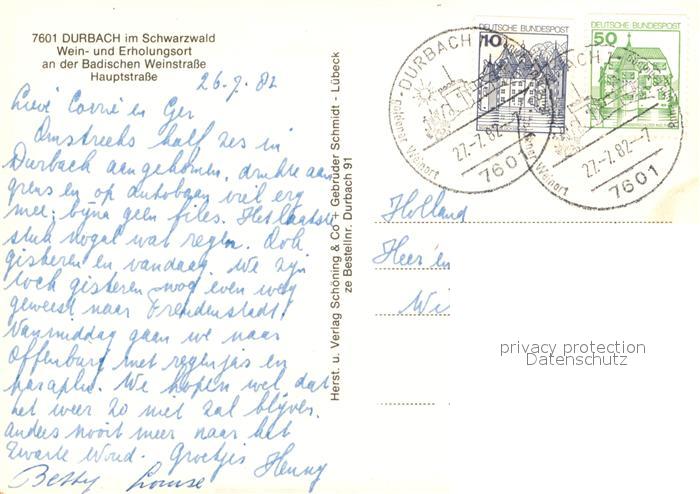 7601 DURBACH im Schwarzwald
Wein- und Erholungsort
an der Badischen Weinstraße
Hauptstraße
26.7.82
Lieve Corrie en Ger
Omstreeks half zes in
Durbach aangekomen, drukte aan
grens en op autobaan viel erg
mee; bijna geen files. Het laatste
stuk nogal wat regen. Ook
gisteren en vandaag. We zijn
toch gisteren nog even weg
geweest naar Freudenstadt!
Vanmiddag gaan we naar
Offenburg met regenjas en
paraplu. We hopen wel dat
het weer zo niet zal blijven.
anders nooit meer naar het
Zwarte Woud. Groetjes Henny
Betty Louise
Herst. u. Verlag Schöning & Co + Gebrüder Schmidt - Lübeck
ze Bestellnr. Durbach 91
DEUTSCHE BUNDESPOST
10
DEUTSCHE BUNDESPOST
50
DURBACH
goldener Weinort
27.-7.82.-7
7601
BACH
Weinort
27.-7.82.-7
7601
Holland
Heer en
Wi
privacy protection
Datenschutz